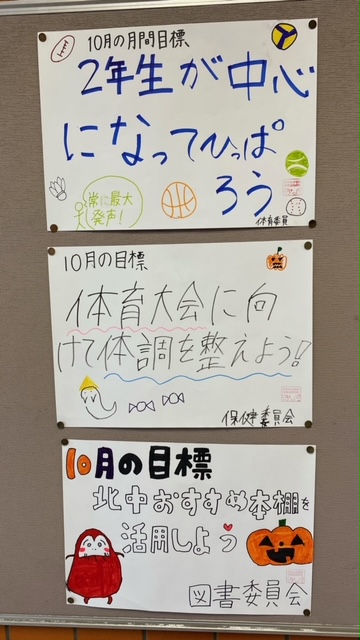 10月の月間目標
2年生が中心
になってひっぱ
ろう
常に最大
発声!
体育委員
10月の目標
体育大会に向
けて体調を整えよう!!
保健委員会
10月の目標
北中おすすめ本棚を
活用しよう
図書委員会